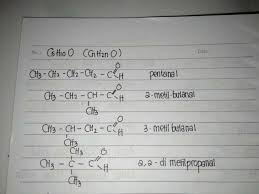 C5H10O (CnH2nO)
CH3-CH2-CH2-CH2-C=O H pentanal
CH3-CH2-CH-C=O H 2-metil butanal
CH3
CH3-CH-CH2-C=O H 3-metil butanal
CH3
CH3 O
CH3-C-C-H 2,2-di metilpropanal
CH3